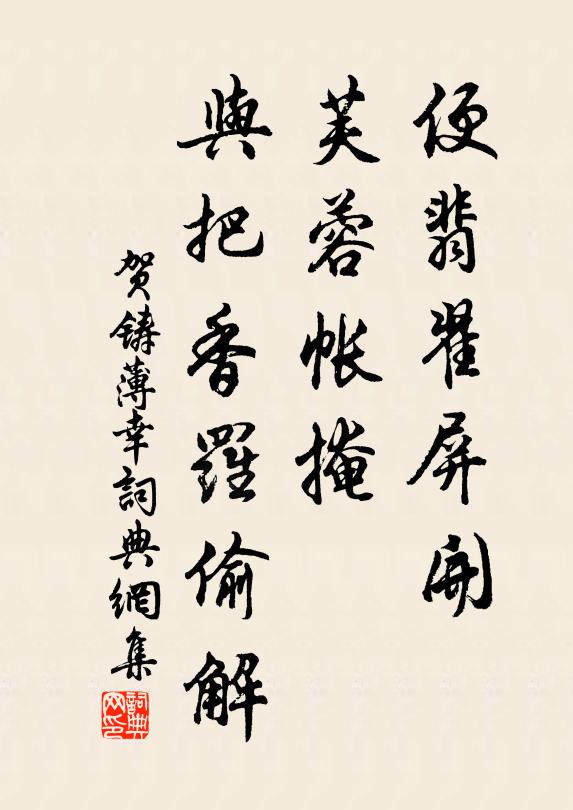 便翡翠屏開
芙蓉帳掩
與把香羅偷解
贺鑄薄幸詞典網集
詞典网印